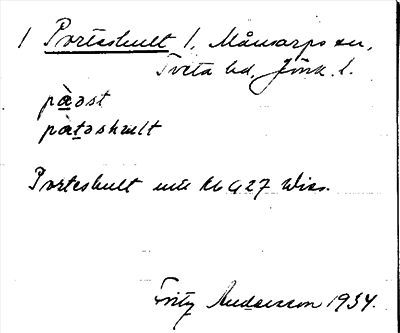 1 Porteshult 1, Månsarps sn,
Tveta hd, Jönk. l.
pàəst
pàtəshult
Porteshult
Fritz Andersson 1934.